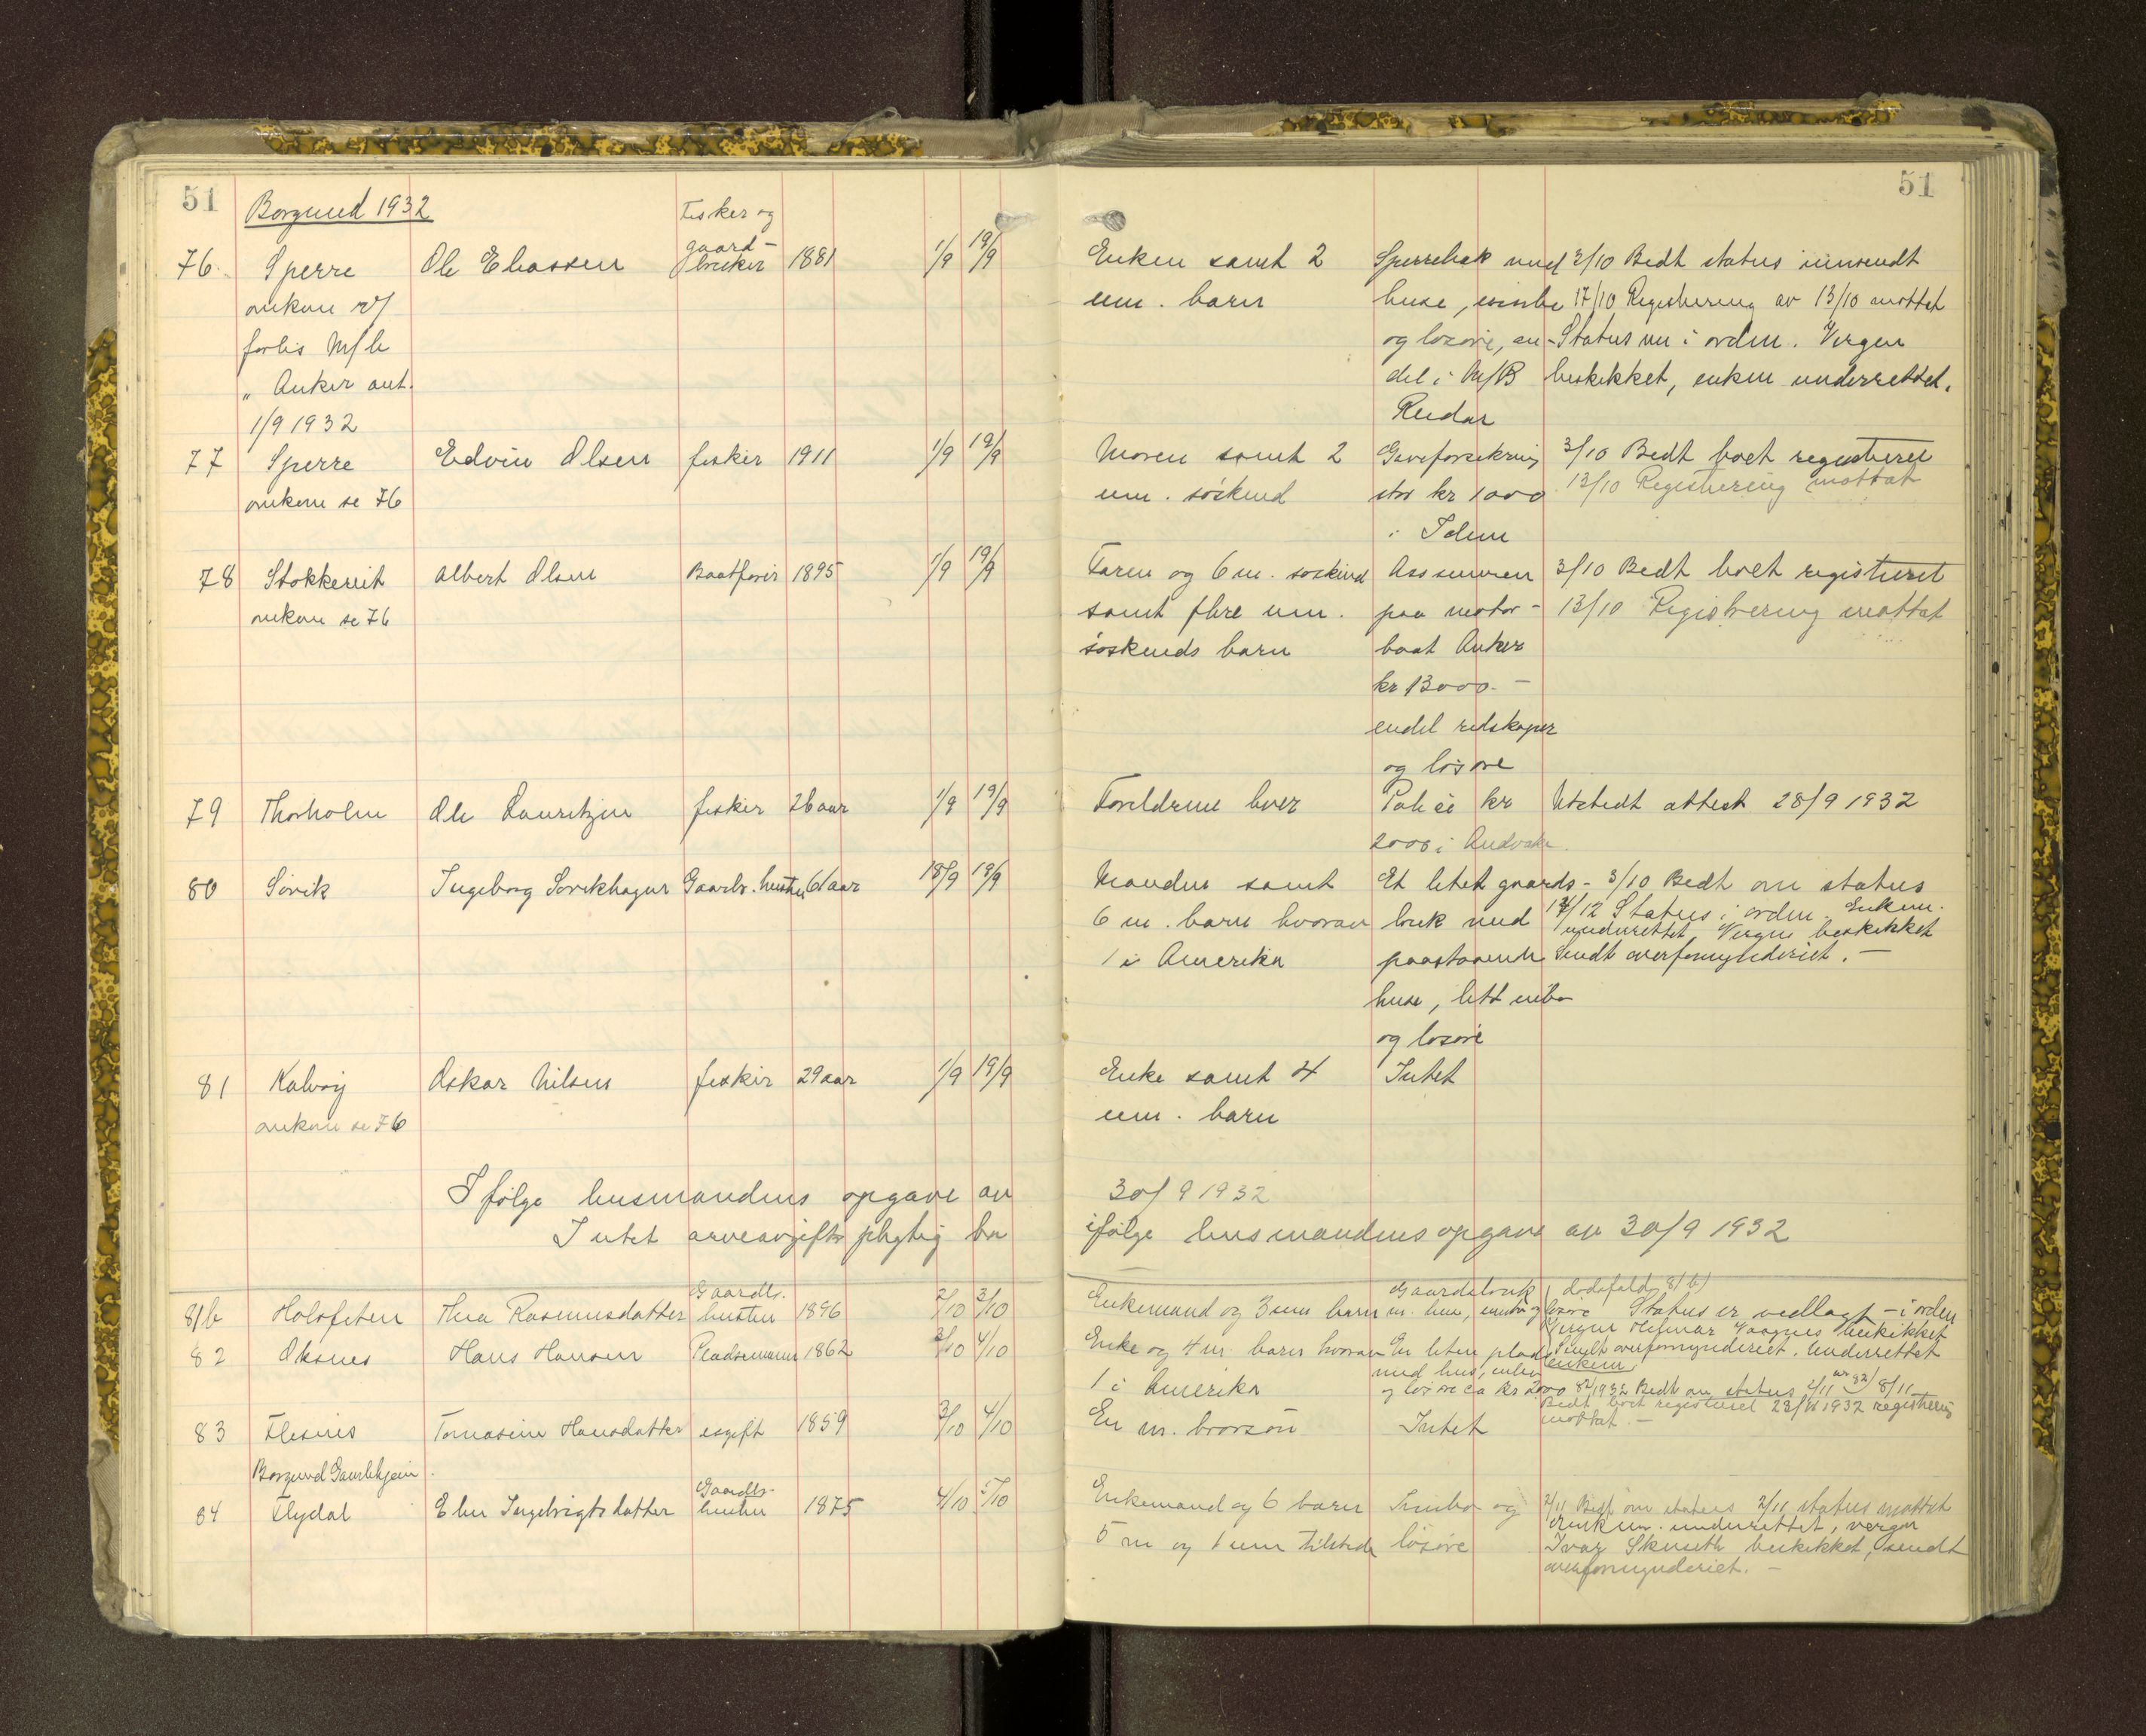 51
Borgund 1932
Fisker og
gaard-
76. Sperre Ole Eliassen bruker 1881 1/9 19/9
omkom v/
forlis M/b
„ Anker ant.
1/9 1932
77 Sperre Edvin Olsen fisker 1911 1/9 19/9
omkom se 76
78 Stokkereit Albert Olsen Baatfører 1895 1/9 19/9
omkom se 76
79 Thorholm Ole Lauritzen fisker 26 aar 1/9 19/9
80 Søvik Ingeborg Søvikhagen Gaardbr. hustru 61 aar 18/9 19/9
81 Kalvøy Oskar Nilsen fisker 29 aar 1/9 19/9
omkom se 76
Ifølge lensmandens opgave av
Intet arveavgiftspligtig bo
Gaardbr.
81b Holsfeten Thea Rasmusdatter hustru 1896 2/10 3/10
82 Oksnes Hans Hansen Pladsemann 1862 3/10 4/10
83 Flesnes Tomasine Hansdatter ugift 1859 3/10 4/10
Borgund Gamlehjem
Gaardbr.
84 Flydal Elen Ingebrigtsdatter hustru 1875 4/10 5/10
51
Enken samt 2 Sperrebak med 3/10 Bedt status innsendt
um. barn huse, innbo 17/10 Registrering av 13/10 mottat
og løsøre, en- Status nu i orden. Vergen
del i M/B beskikket, enken underrettet.
Reidar
Moren samt 2 Gaveforsikring 3/10 Bedt boet registreret
um. søskend stor kr 1000 13/10 Registrering mottat
i Idun
Faren og 6 m. søskend Assuransen 3/10 Bedt boet registreret
samt flere um. paa motor- 13/10 Registrering mottat
søskends barn baat Anker
kr 13000.-
endel redskaper
og løsøre
Foreldrene lever Police kr Utstedt attest 28/9 1932
2000 i Andvake.
Manden samt Et litet gaards- 3/10 Bedt om status
6 m. barn hvorav bruk med 17/12 Status i orden. Enkem.
underrettet Verge beskikket
1 i Amerika paastaaende Sendt overformynderiet. -
huse, litt inbo
og løsøre
Enke samt 4 Intet
um. barn
30/9 1932
ifølge lensmandens opgave av 30/9 1932
Gaardsbruk (dødsfald 81b)
Enkemand og 3 um barn m. huse, innbo og løsøre Status er vedlagt - i orden
Vergen Hilmar Vaagnes beskikket
Enke og 4 m. barn hvorav En liten plads Sendt overformynderiet. Underrettet
med hus, inbo enkem.
1 i Amerika og løsøre ca kr 2000 1932 Bedt om status 2/11 8/11
Bedt boet registreret 23/11 1932 registrering
En m. brorsøn Intet mottat. -
Enkemand og 6 barn Innbo og 2/11 Bedt om status 2/11 status mottat
enkem. underrettet, verge
5 m og 1 um tilstede løsøre Ivar beskikket, sendt
overformynderiet. -